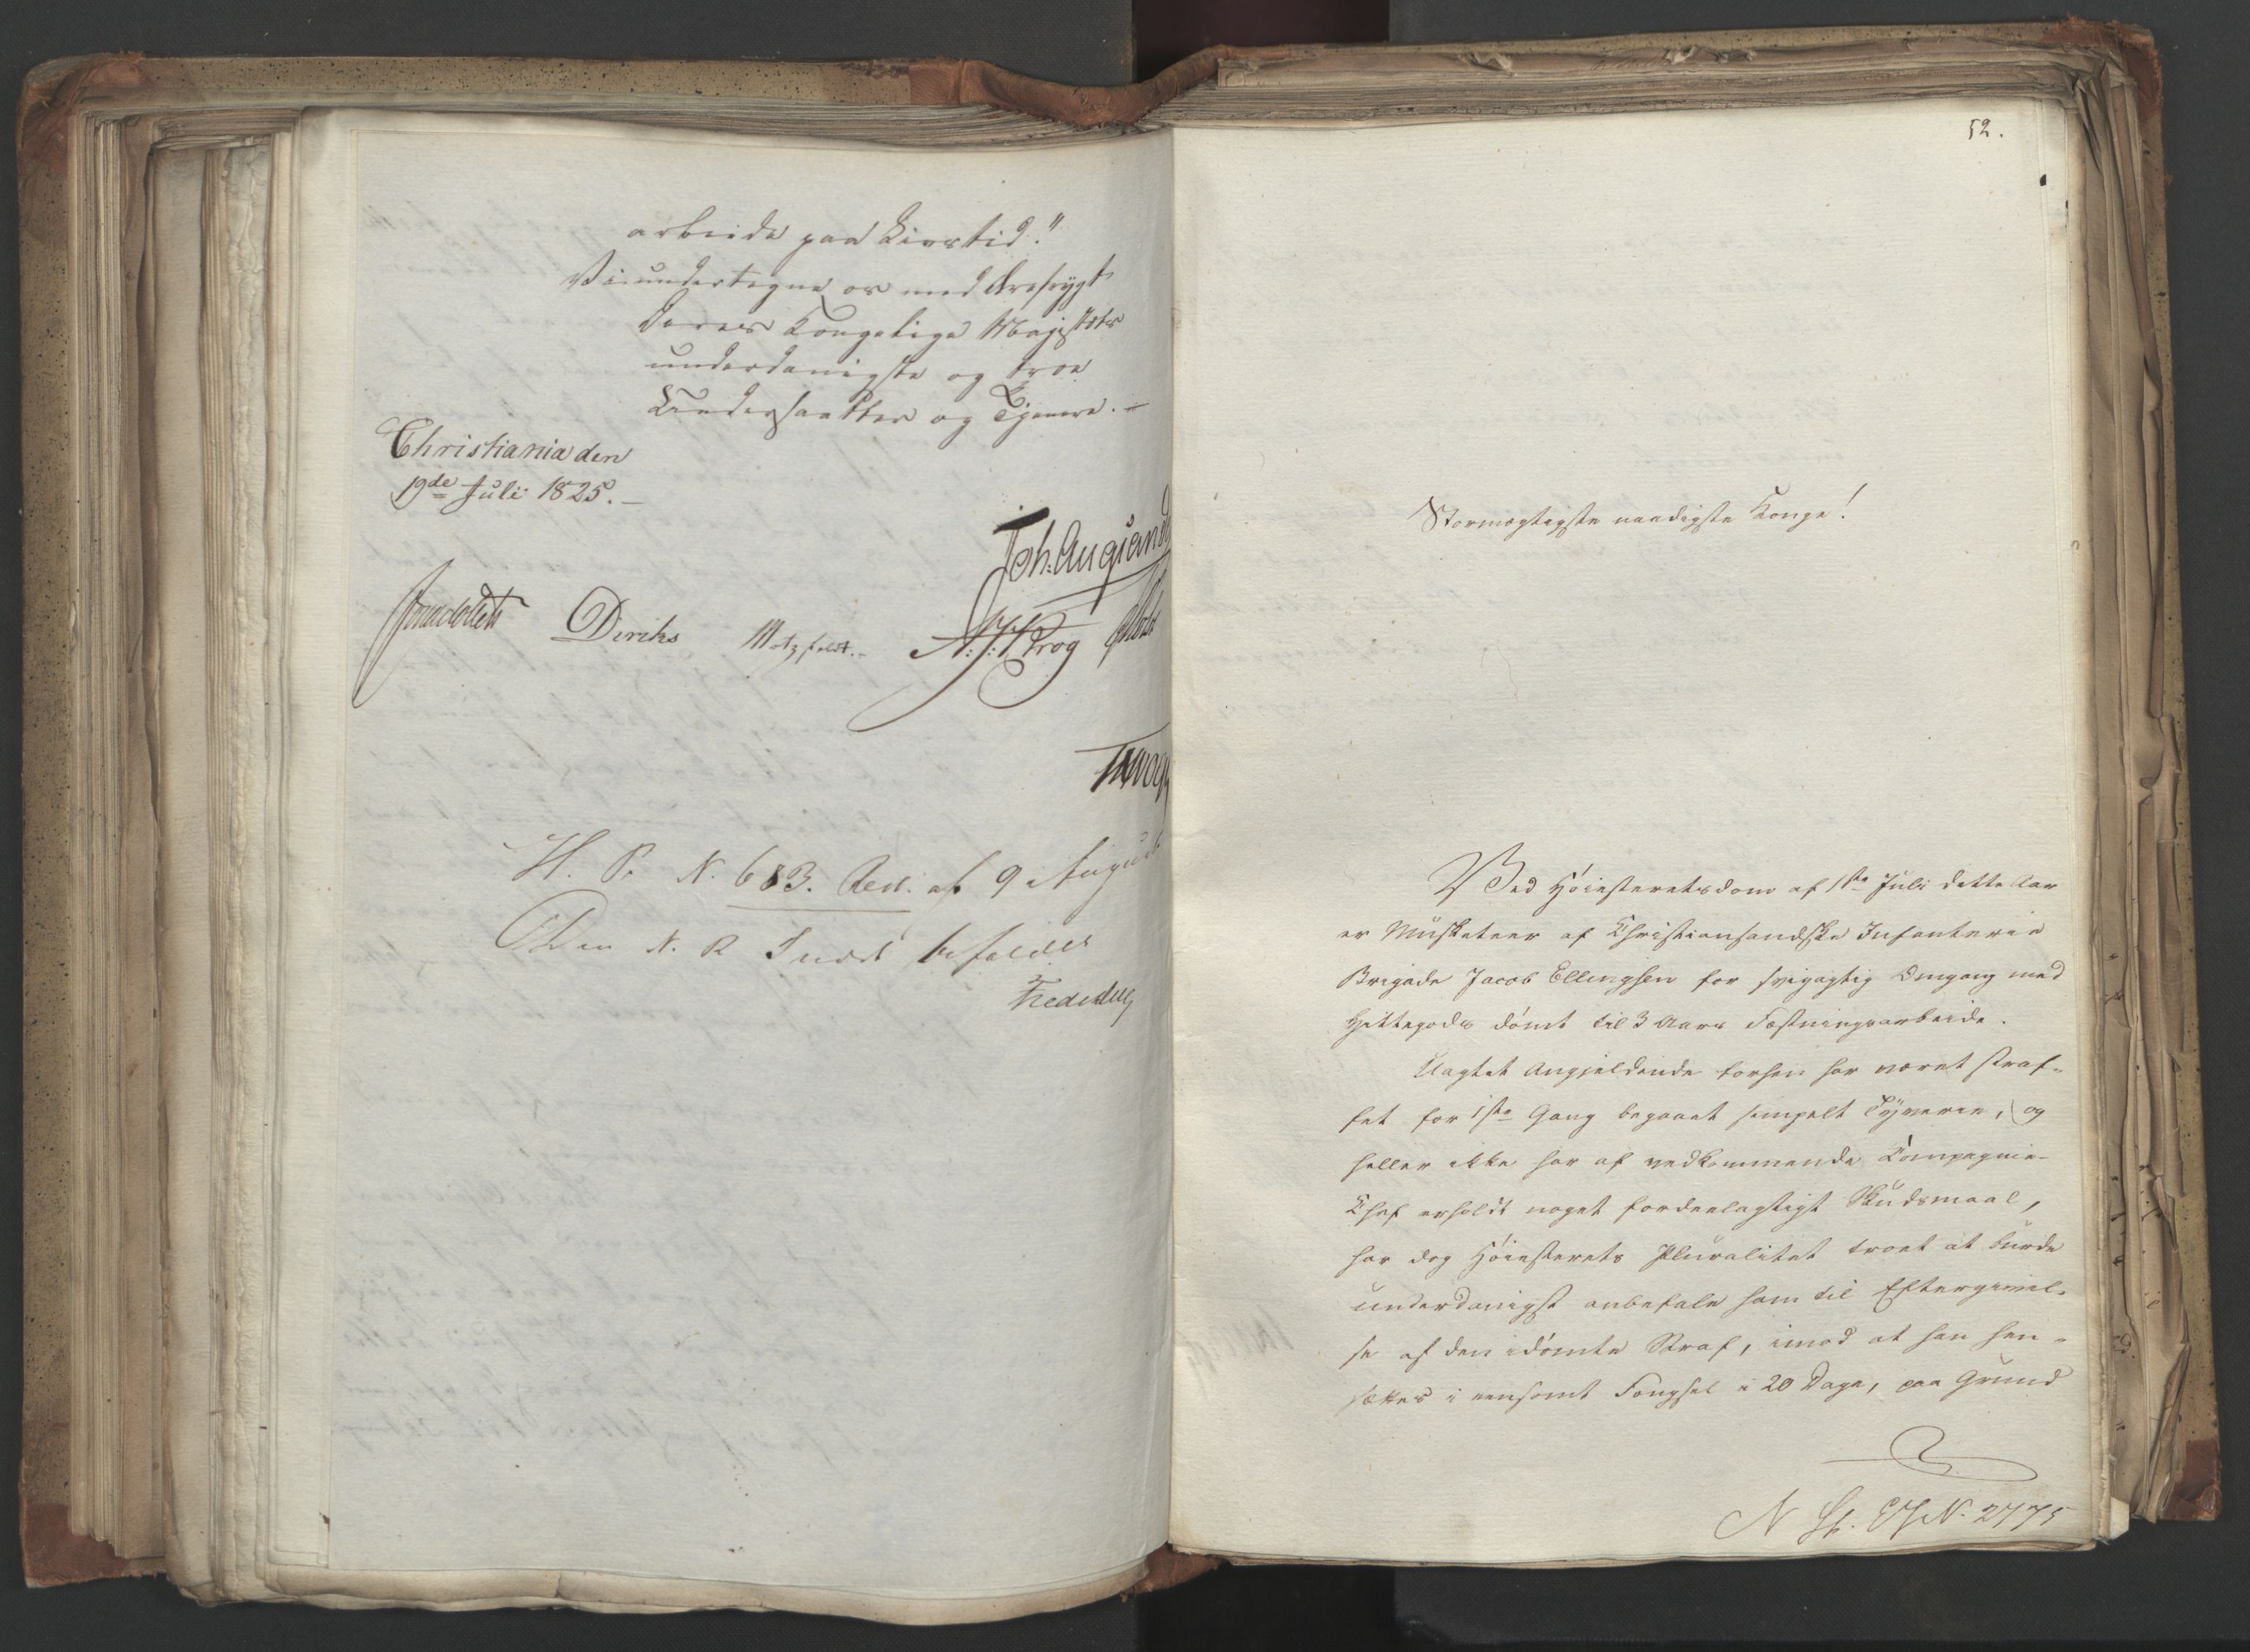 arbeide paa Livstid."
Vi undertegne os med Ærefrygt
Deres Kongelige Majestæts
underdanigste og troe
Undersaatter og Tjenere. -
Christiania den
19de Juli 1825. -
Diriks Motzfeldt. -
H. P. N. 683. Res. af 9 August
Den N. R Indst bifaldes
52.
Stormægtigste naadigste Konge!
Ved Höiesteretsdom af 1ste Juli dette Aar
er Musketeer af Christiansandske Infanterie
Brigade Jacob Ellingsen for svigagtig Omgang med
Hittegods dömt til 3 Aars Fæstningsarbeide.
Uagtet Angjeldende forhen har været straf-
fet for 1ste Gang begaaet simpelt Tyverie, og
heller ikke har af vedkommende Compagnie-
Chef erholdt noget fordeelagtigt Skudsmaal,
har dog Höiesterets Pluralitet troet at burde
underdanigst anbefale ham til Eftergivel-
se af den idömte Straf, imod at han hen-
sættes i eensomt Fængsel i 20 Dage, paa Grund
N 2775